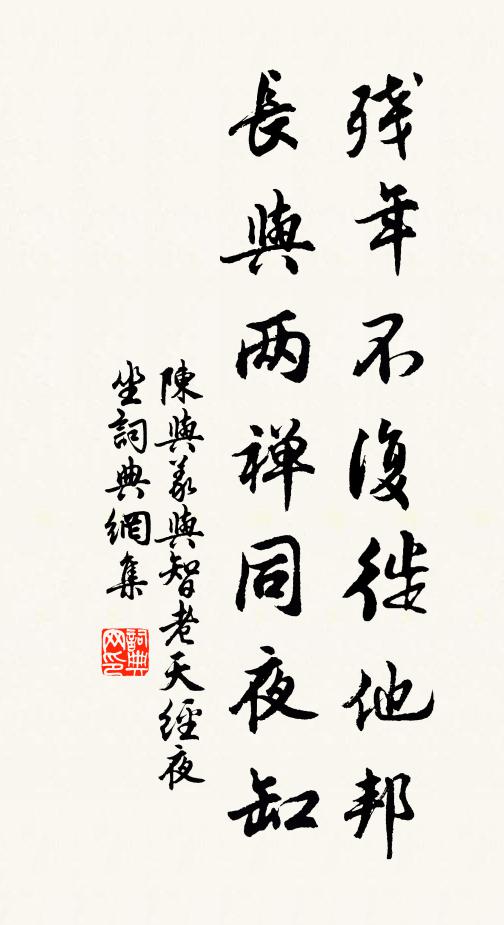 残年不復徙他邦
長與两禅同夜缸
陳與義與智老天經夜
坐詞典網集
詞典网印